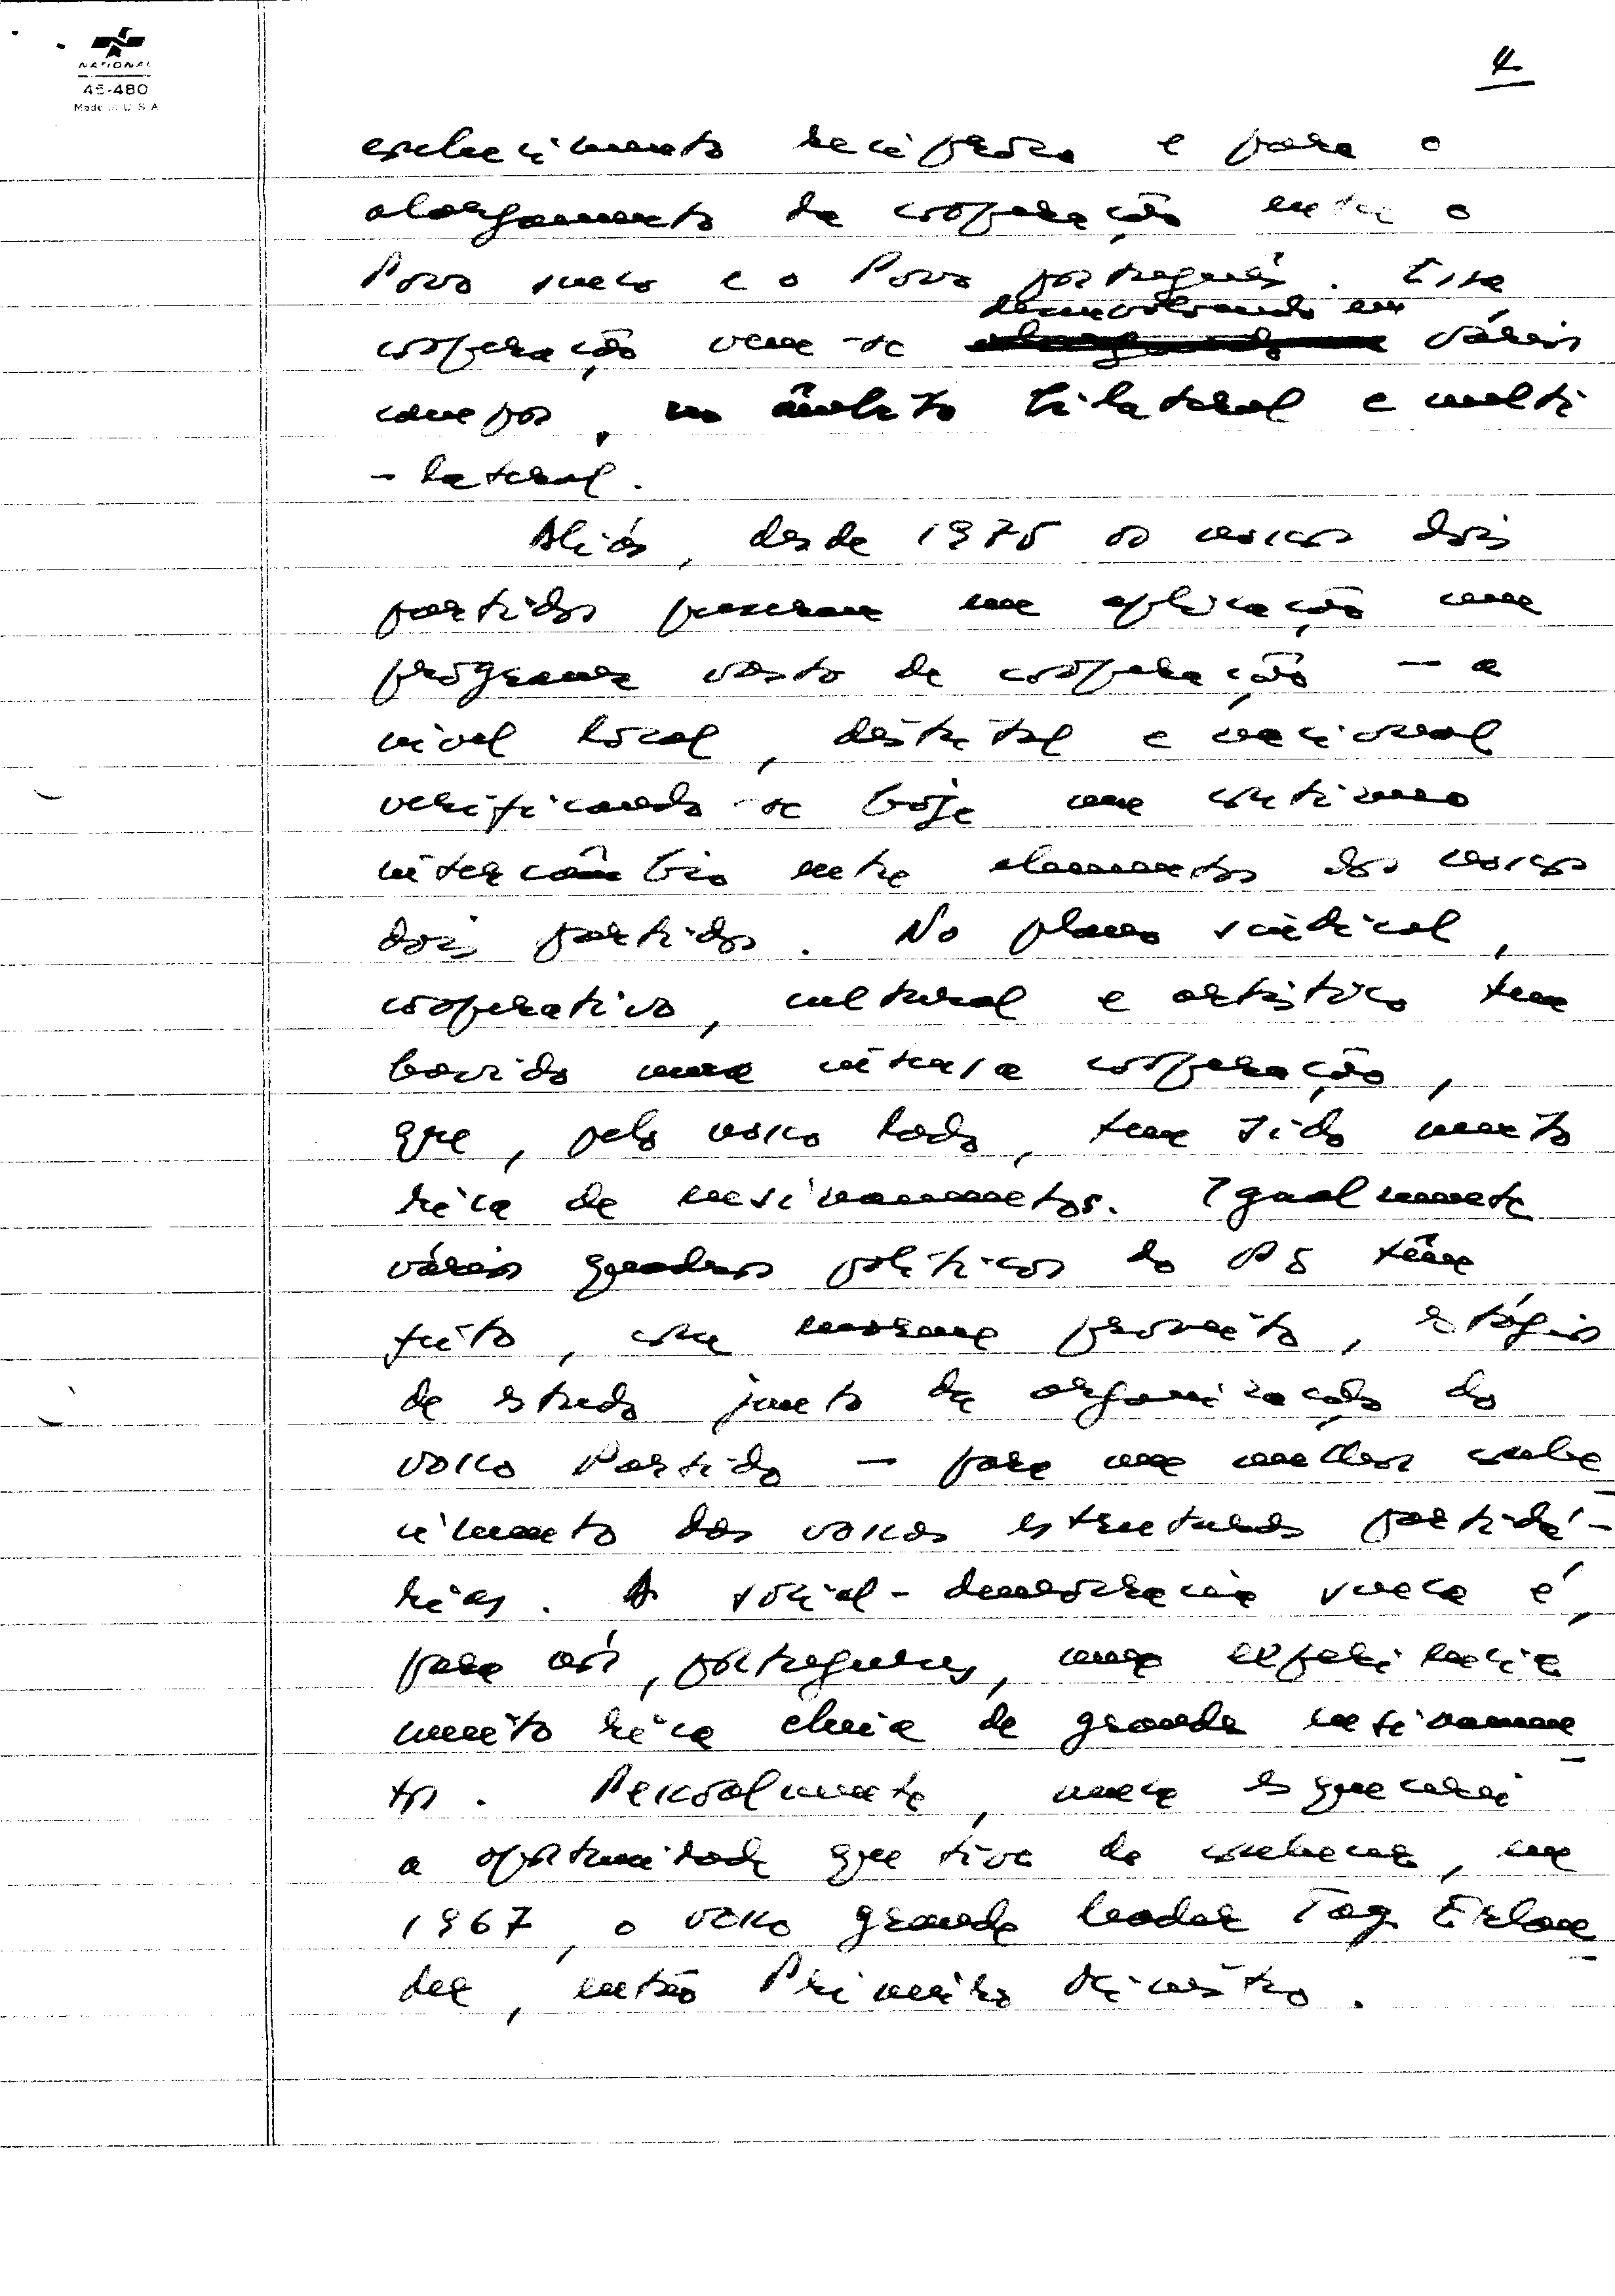 NATIONAL
45-480
Made in U S A
4
conhecimento recíproco e para o
alargamento da cooperação entre o
Povo sueco e o Povo português. Essa
desenvolvendo em
cooperação vem-se vários
campos, no âmbito bilateral e multi
-lateral.
Aliás, desde 1975 os nossos dois
partidos puseram em aplicação um
programa vasto de cooperação - a
nível local, distrital e nacional
verificando-se hoje um contínuo
intercâmbio entre elementos dos nossos
dois partidos. No plano sindical,
cooperativo, cultural e artístico tem
havido uma intensa cooperação,
que, pelo nosso lado, tem sido muito
rica de ensinamentos. Igualmente
vários quadros políticos do PS têm
feito, com enorme proveito, estágios
de estudo junto de organizações do
vosso Partido - para um melhor conhe
cimento das vossas estruturas partidá-
rias. A social-democracia sueca é,
para nós, portugueses, uma experiência
muito rica cheia de grandes ensinamen
tos. Pessoalmente, nunca esquecerei
a oportunidade que tive de conhecer, em
1967, o vosso grande leader Tag Erlan
der, então Primeiro Ministro.